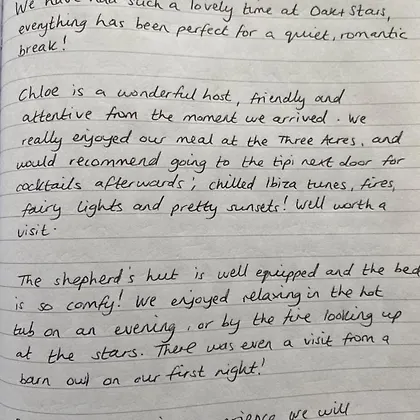 We have had such a lovely time at Oak + Stars,
everything has been perfect for a quiet, romantic
break!
Chloe is a wonderful host, friendly and
attentive from the moment we arrived. We
really enjoyed our meal at the Three Acres, and
would recommend going to the tipi next door for
cocktails afterwards; chilled Ibiza tunes, fires,
fairy lights and pretty sunsets! Well worth a
visit.
The shepherd's hut is well equipped and the bed
is so comfy! We enjoyed relaxing in the hot
tub on an evening, or by the fire looking up
at the stars. There was even a visit from a
barn owl on our first night!
we will